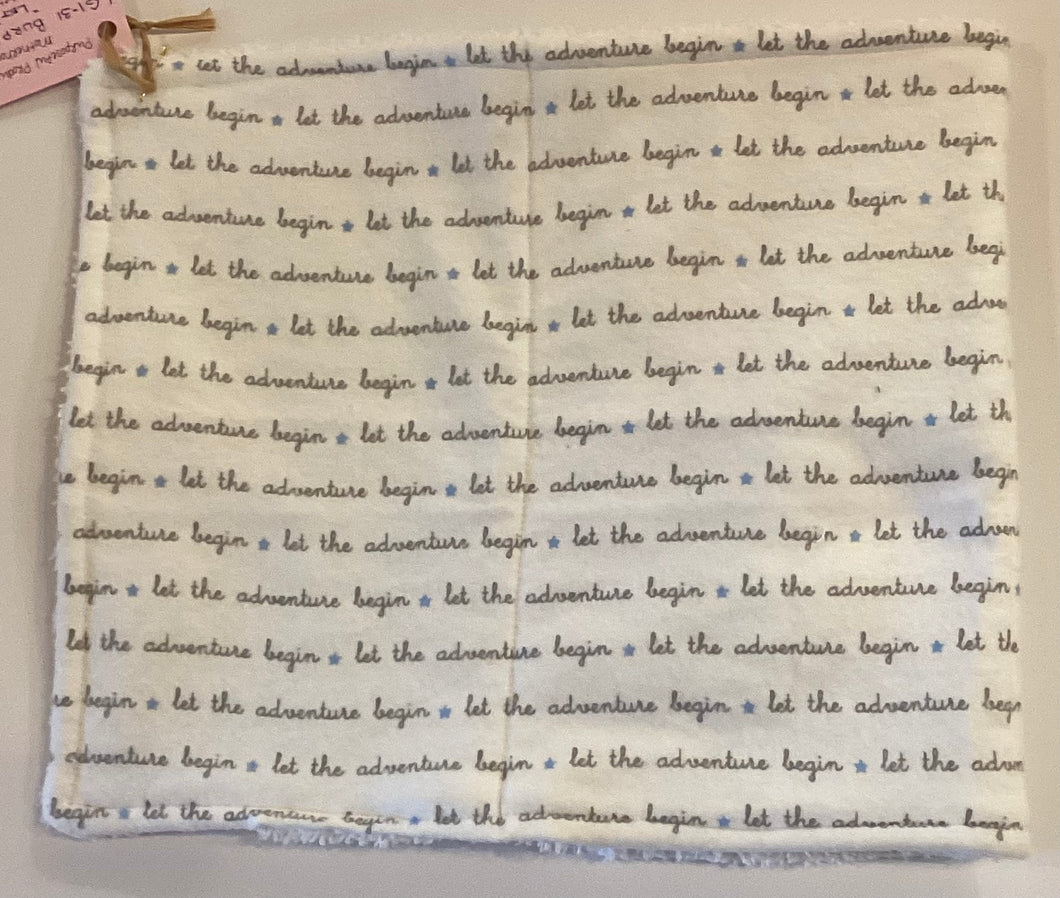 G1-31
BURP
let the adventure begin ★ let the adventure begin ★ let the adventure begin
adventure begin ★ let the adventure begin ★ let the adventure begin ★ let the adven
begin ★ let the adventure begin ★ let the adventure begin ★ let the adventure begin
let the adventure begin ★ let the adventure begin ★ let the adventure begin ★ let th
e begin ★ let the adventure begin ★ let the adventure begin ★ let the adventure begi
adventure begin ★ let the adventure begin ★ let the adventure begin ★ let the adve
begin ★ let the adventure begin ★ let the adventure begin ★ let the adventure begin
let the adventure begin ★ let the adventure begin ★ let the adventure begin ★ let th
re begin ★ let the adventure begin ★ let the adventure begin ★ let the adventure begin
adventure begin ★ let the adventure begin ★ let the adventure begin ★ let the adven
begin ★ let the adventure begin ★ let the adventure begin ★ let the adventure begin
let the adventure begin ★ let the adventure begin ★ let the adventure begin ★ let the
re begin ★ let the adventure begin ★ let the adventure begin ★ let the adventure beg
adventure begin ★ let the adventure begin ★ let the adventure begin ★ let the adve
begin ★ let the adventure begin ★ let the adventure begin ★ let the adventure begin